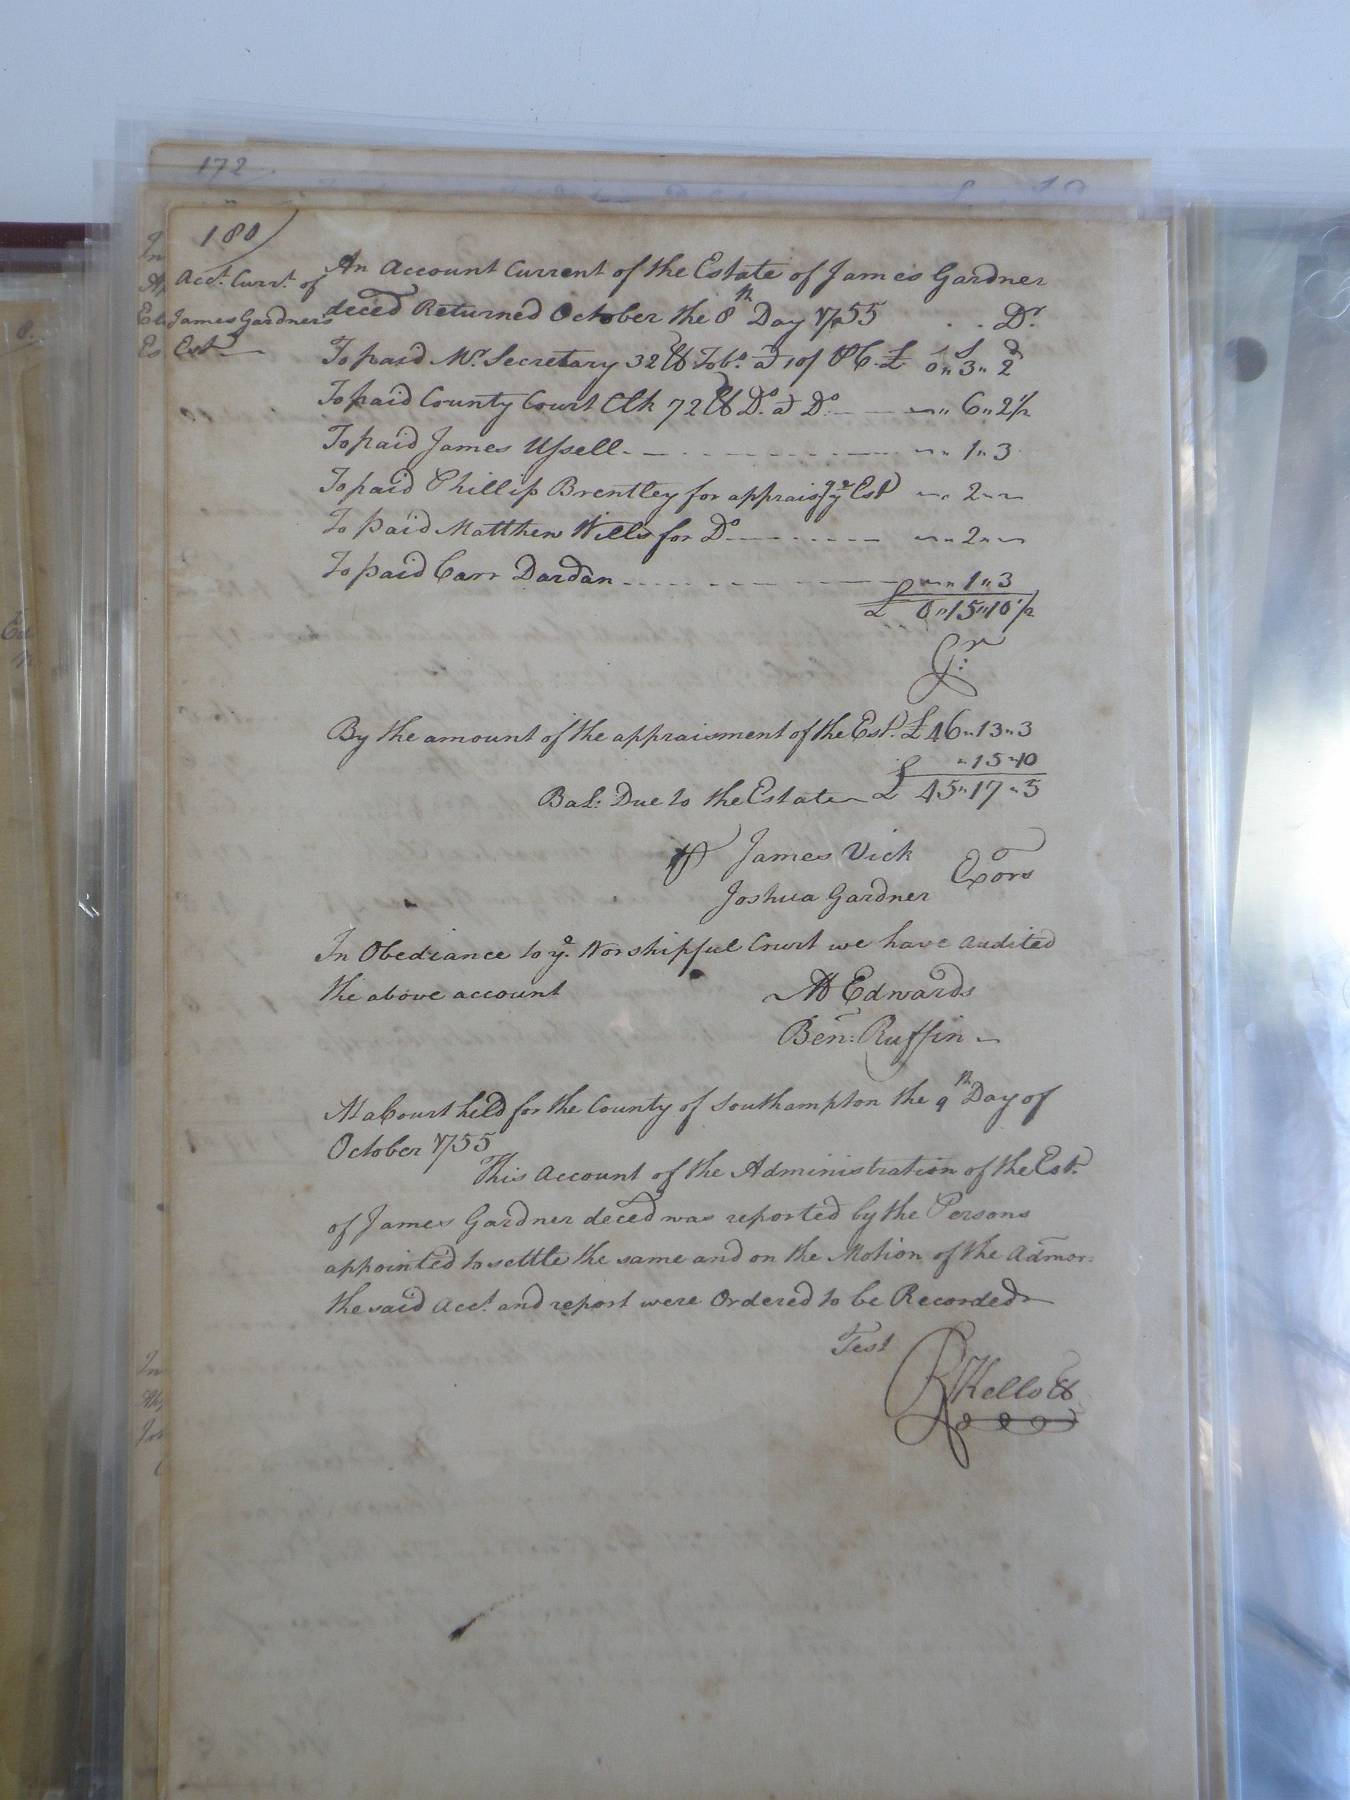 172
180
Acct. Currt. of
James Gardners
Est
An Account Current of the Estate of James Gardner
deced Returned October the 8th Day 1755 . . Dr.
£ S d
To paid Mr. Secretary 32 lb Tobo. at 10/ P C. £ 0 " 3 " 2
To paid County Court Clk 72 lb Do. at Do. " 6 " 2 1/2
To paid James Ussell " 1 " 3
To paid Phillip Brentley for appraisg ye Est " 2 "
To paid Matthew Wills for Do " 2 "
To paid Carr Dardan " 1 " 3
£ 0 " 15 " 10 1/2
Cr.
By the amount of the appraisment of the Est. £ 46 " 13 " 3
" 15 " 10
Bal: Due to the Estate £ 45 " 17 " 5
James Vick
Exors
Joshua Gardner
In Obediance to ye. Worshipful Court we have audited
the above account
Edwards
Ben: Ruffin
At a Court held for the County of Southampton the 9th Day of
October 1755
This Account of the Administration of the Est.
of James Gardner deced was reported by the Persons
appointed to settle the same and on the Motion of the Admor.
the said Acct. and report were Ordered to be Recorded
Test
R Kello